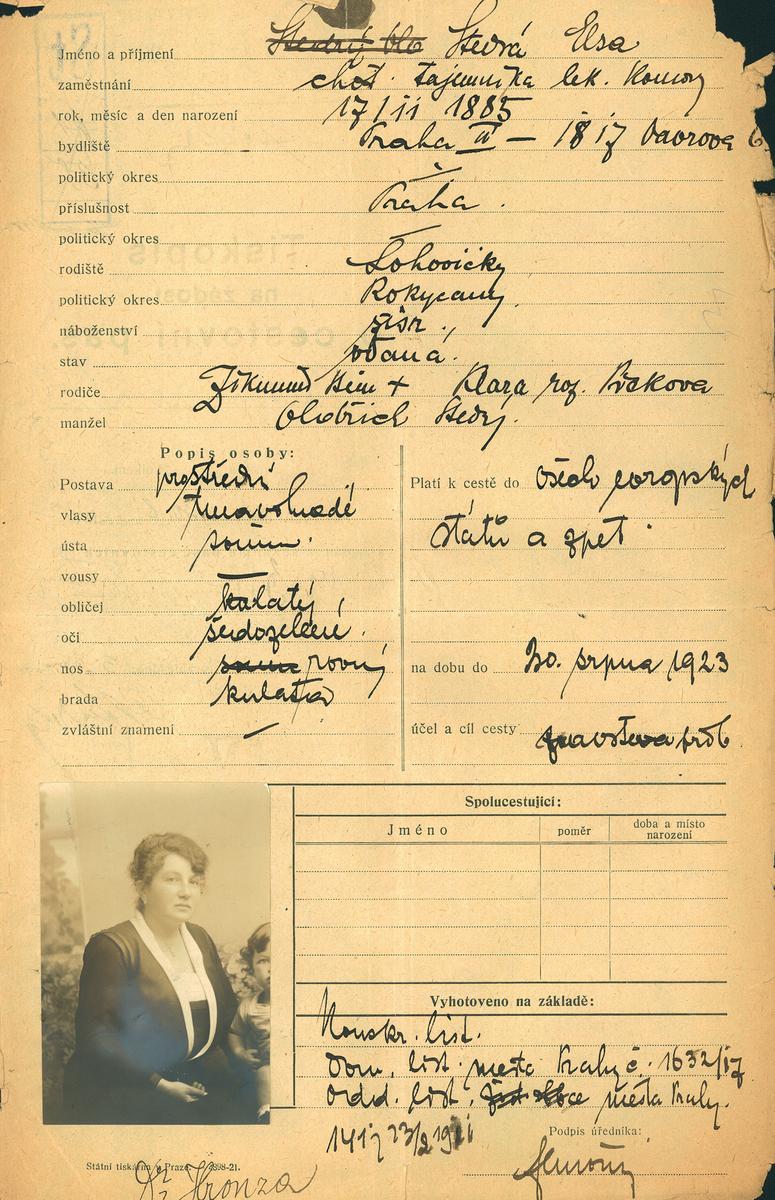 Jméno a příjmení Štedrá Elsa
zaměstnání choť. tajemníka lek. Komory
rok, měsíc a den narození 17/II 1885
bydliště Praha II — 1817 Vavrova
politický okres —
příslušnost Praha.
politický okres —
rodiště Lohovičky
politický okres Rokycany.
náboženství
stav vdaná.
rodiče + Klara roz.
manžel Oldřich Štedrý.
Popis osoby:
Postava prostřední
vlasy tmavohnědé
ústa soum.
vousy —
obličej kulatý
oči šedozelené.
nos rovný
brada kulatá
zvláštní znamení —
Platí k cestě do všech evropských
států a zpět.
na dobu do 30. srpna 1923
účel a cíl cesty
Spolucestující:
Jméno
poměr
doba a místo narození
Vyhotoveno na základě:
list.
Dom. list. města Prahy č. 1632/17
Odd. list. města Prahy.
Podpis úředníka:
Státní tiskárna v Praze.
Dr Hronza